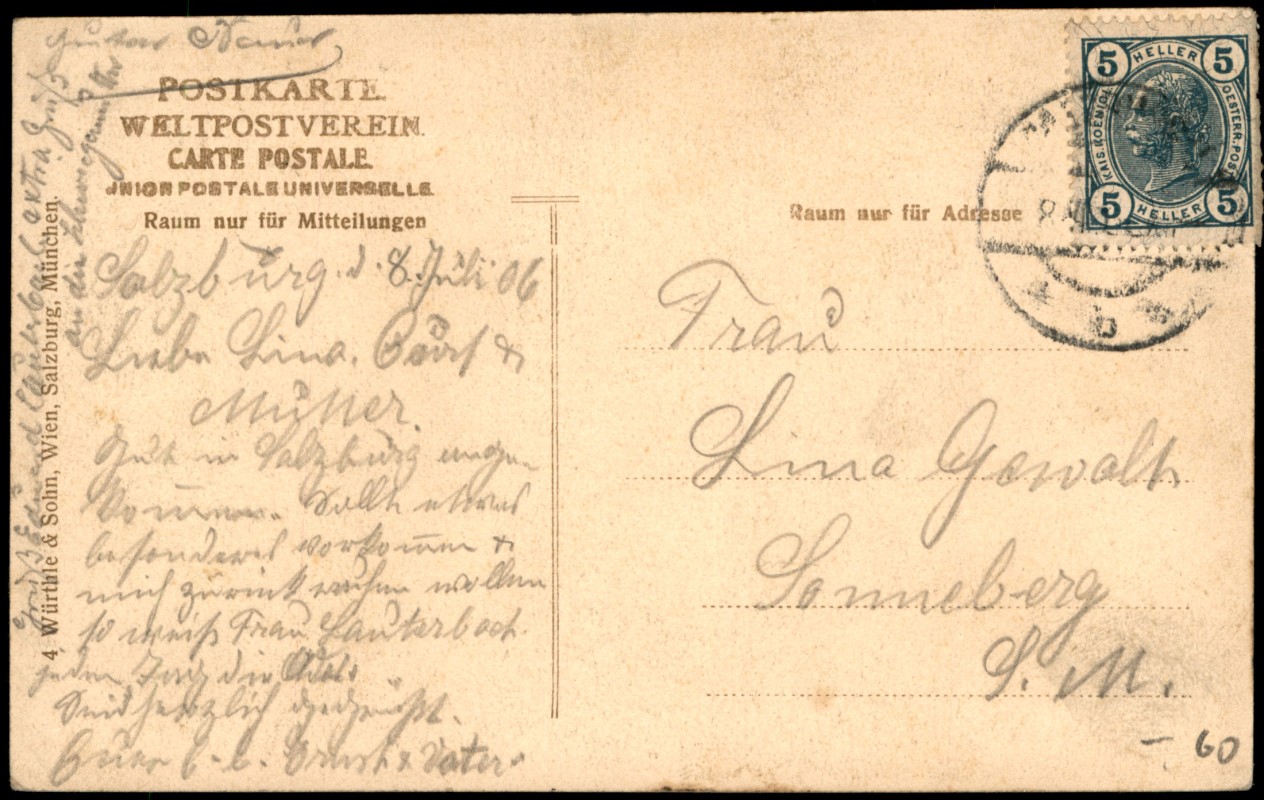 Gustav
POSTKARTE.
WELTPOSTVEREIN.
CARTE POSTALE.
UNION POSTALE UNIVERSELLE.
Raum nur für Mitteilungen
Salzburg. d. 8. Juli 06
Liebe Lina. &
Mutter.
Gut in Salzburg ange-
kommen. Sollte etwas
besonderes vorkommen &
mich zurück rufen wollen
so weiß Frau Lauterbach
jeden Tag die
Seid herzlich gegrüßt.
Euer & Vater.
Gruß Edmund Lauterbach extra Gruß
an die
4 Würthle & Sohn, Wien, Salzburg, München.
Raum nur für Adresse
5 HELLER 5
KAIS. KOENIGL.
OESTERR. POST
5 HELLER 5
Frau
Lina Gewalt
Sonneberg
S. M.
- 60